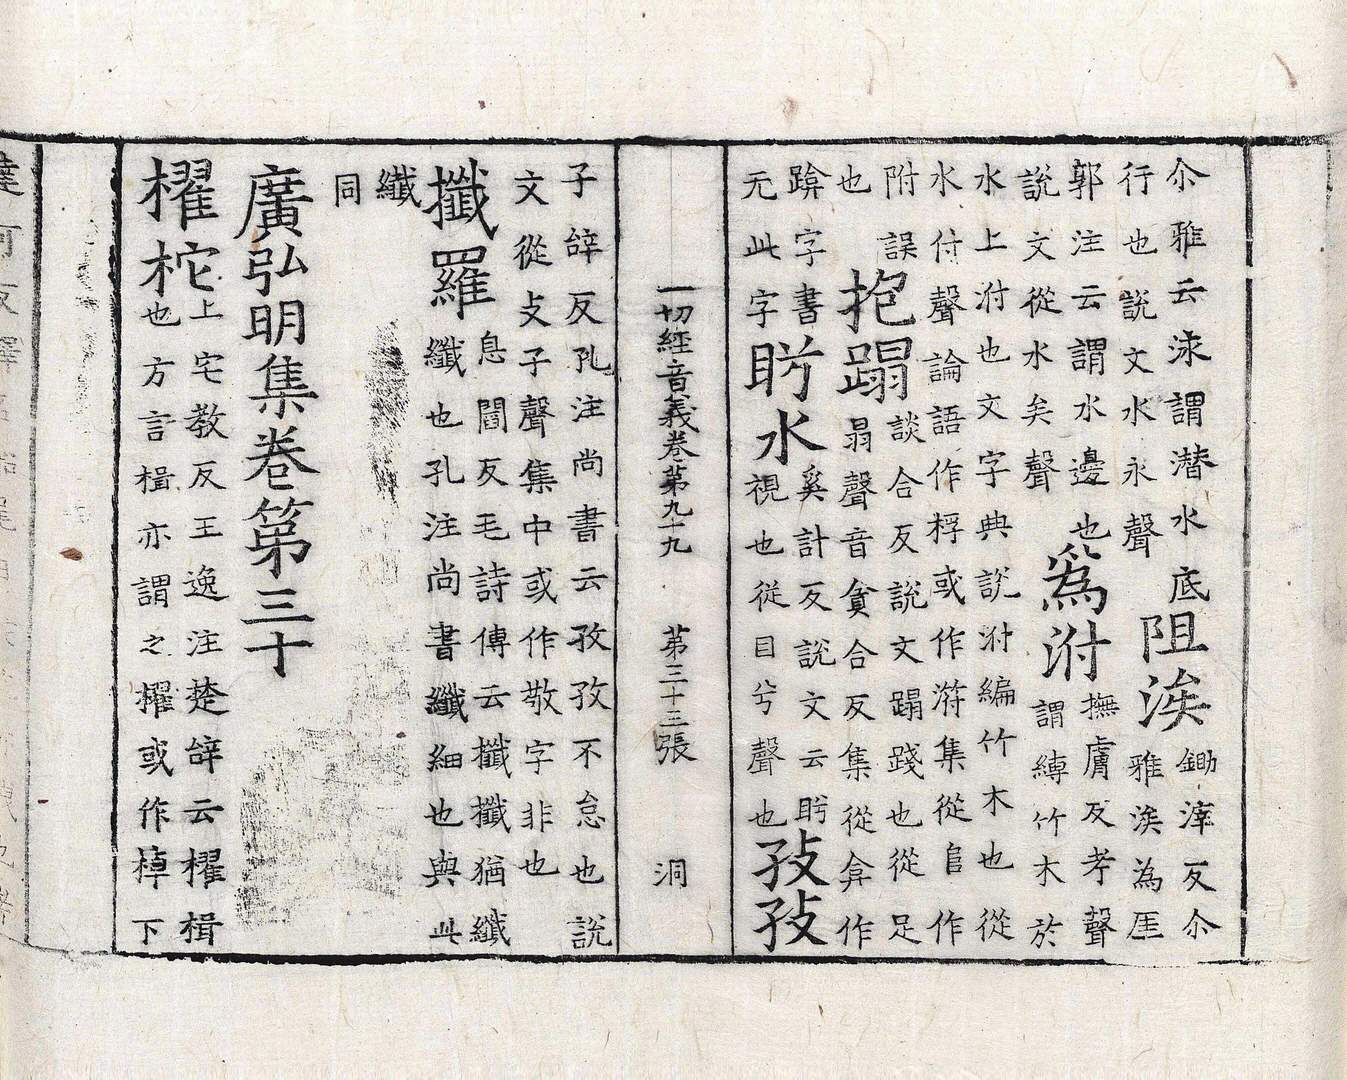 尒雅云泳謂潜水底行也說文水永聲 阻涘 鋤滓反尒雅涘為厓
郭注云謂水邊也說文從水矣聲 爲泭 撫膚反考聲謂縛竹木於
水上泭也文字典說泭編竹木也從水付聲論語作桴或作㳺集從𠂤作
附誤也 抱蹋 談合反說文蹋踐也從足𦐇聲音貪合反集從弇作
踚字書无此字 盻水 奚計反說文云盻視也從目兮聲也 孜孜
一切經音義卷第九十九 第三十三張 洞
子辝反孔注尚書云孜孜不怠也說文從攴子聲集中或作敬字非也
攕羅 息閻反毛詩傳云攕攕猶纖纖也孔注尚書纖細也與此
纖同
廣弘明集卷第三十
櫂柁 上宅教反王逸注楚辝云櫂楫也方言楫亦謂之櫂或作棹下